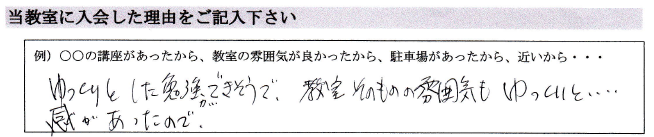 当教室に入会した理由をご記入下さい
例）○○の講座があったから、教室の雰囲気が良かったから、駐車場があったから、近いから・・・
ゆっくりとした勉強ができそうで、教室そのものの雰囲気もゆっくりと……
感があったので、